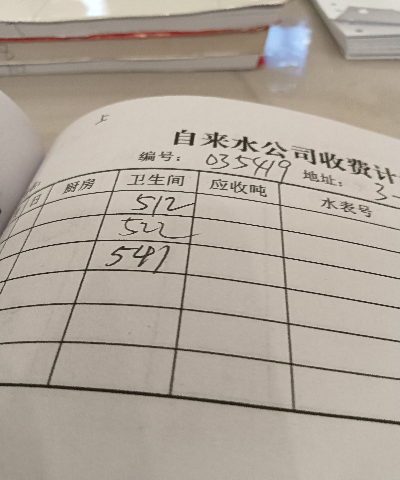 自来水公司收费计
编号： 035419 地址： 3-
日 厨房 卫生间 应收吨 水表号
512
522